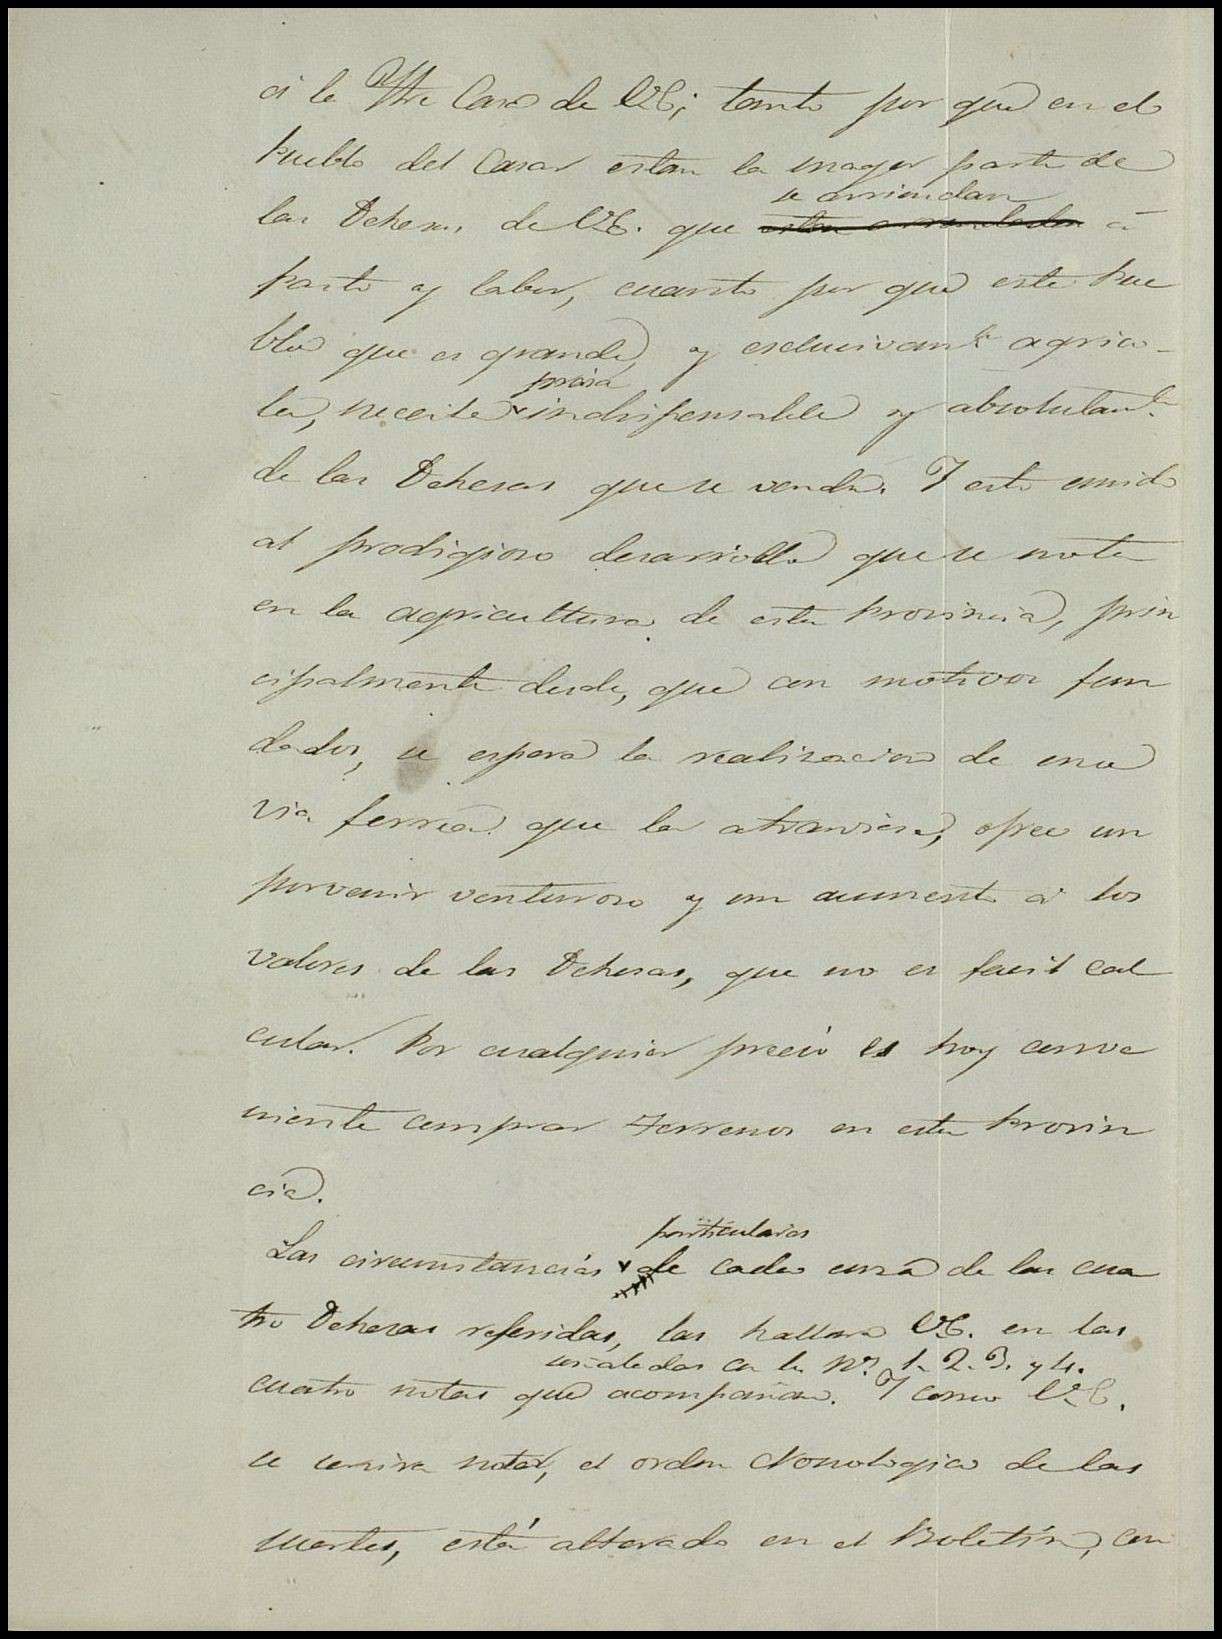 á la Ytre Casa de VE; tanto por que en el
Pueblo del Casar estan la mayor parte de
se arriendan
las Dehesas de VE. que estan arrendadas á
pasto y labor, cuanto por que este Pue
blo que es grande, y esclusivamte. agrico-
para
la, necesita indispensable y absolutamte.
de las Dehesas que se venden. Y esto unido
al prodigioso desarrollo que se nota
en la agricultura de esta Provincia, prin
cipalmente desde, que con motivos fun
dados, se espera la realizacion de una
via ferrea que la atraviese, ofrece un
porvenir venturoso y un aumento á los
valores de las Dehesas, que no es facil cal
cular. Por cualquier precio es hoy conve
niente comprar terrenos en esta Provin
cia.
particulares
Las circunstancias de cada una de las cua
tro Dehesas referidas, las hallara VE. en las
señaladas con los Nos. 1. 2. 3. y 4.
cuatro notas que acompañan. Y como VE.
se servira notar, el orden cronologico de las
suertes, está alterado en el Boletín, con